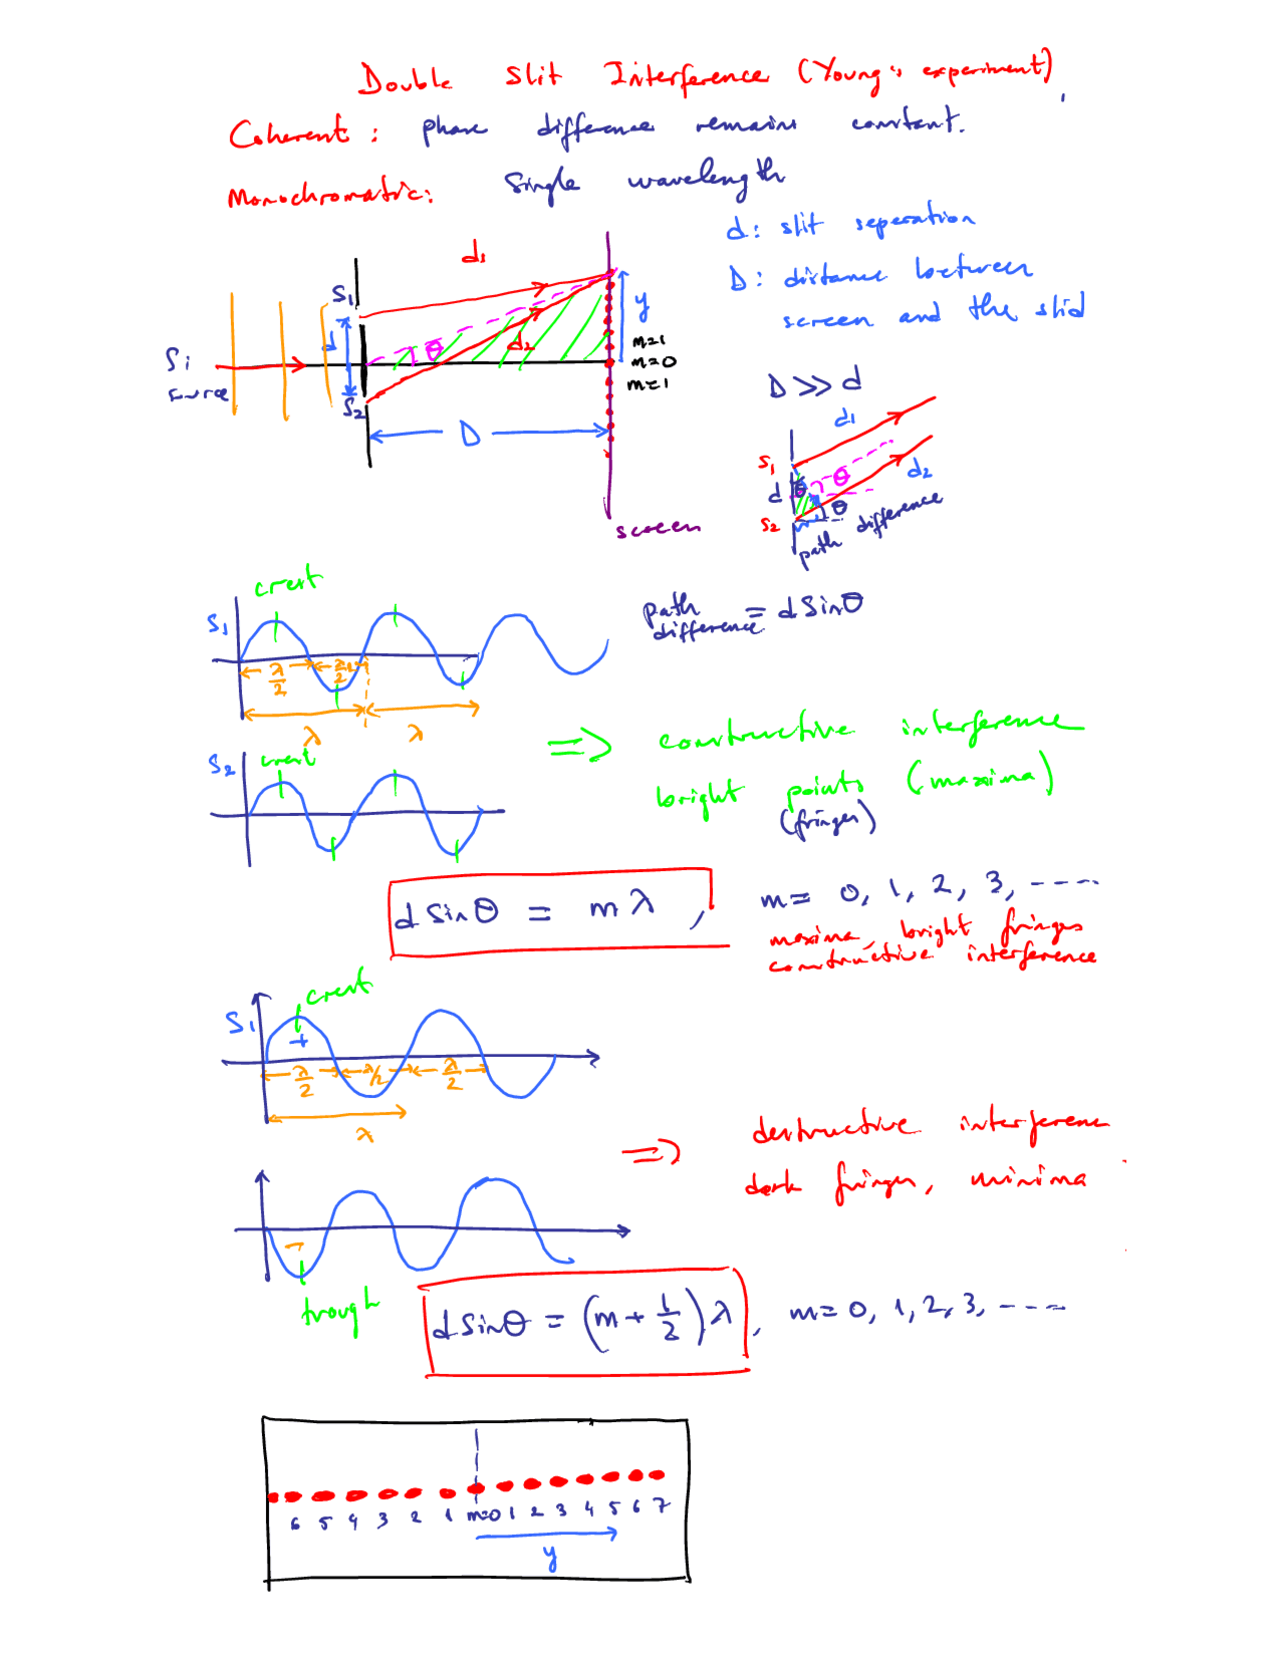 Double Slit Interference (Young's experiment)
Coherent: phase difference remains constant.
Monochromatic: Single wavelength
d: slit seperation
D: distance between
screen and the slid
d₁
S₁
y
d
θ
d₂
m=1
m=0
m=1
Si
source
S₂
D
screen
D >> d
d₁
S₁
θ
d₂
d
θ
θ
S₂
path difference
crest
S₁
λ/2
λ/2
λ
λ
path difference = d Sinθ
crest
S₂
=> constructive interference
bright points (maxima)
(fringes)
d Sinθ = mλ, m= 0, 1, 2, 3, -----
maxima, bright fringes
constructive interference
crest
S₁
+
λ/2
λ/2
λ/2
λ
=> destructive interference
dark fringes, minima
−
trough
d Sinθ = (m + 1/2) λ, m= 0, 1, 2, 3, ----
6 5 4 3 2 1 m=0 1 2 3 4 5 6 7
y